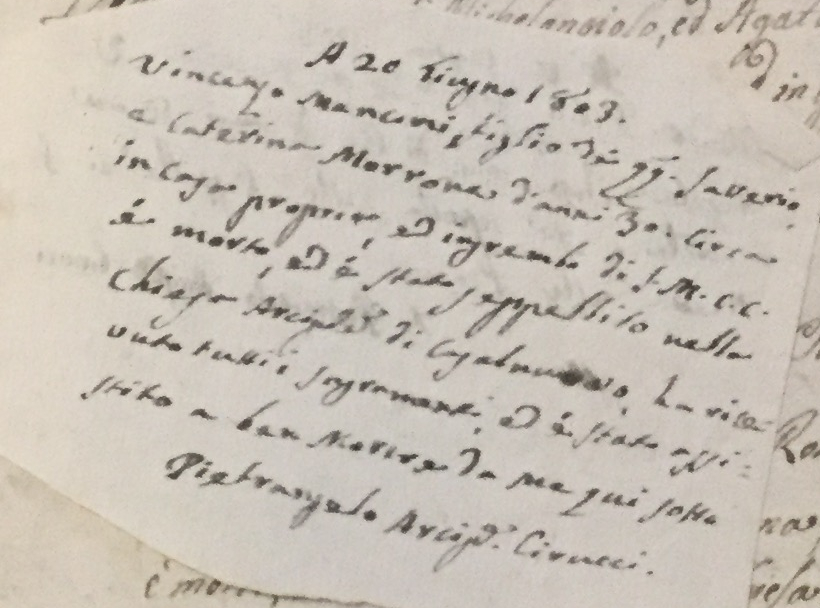 Michelangiolo, ed Agat
in
A 20 Giugno 1803.
Vincenzo Mancini, figlio de qq. Saverio,
e Caterina Morrone d'anni 30. Circa
in Casa propria, ed ingrembo di S. M. C. C.
é morto, ed é stato seppellito nella
Chiesa Arcip.le di Casalnuovo, ha rice=
vuto tutti i sagramenti, ed é stato assi=
stito a ben Morire da me qui sotto
Pietrangelo Arcip.e Cirucci.